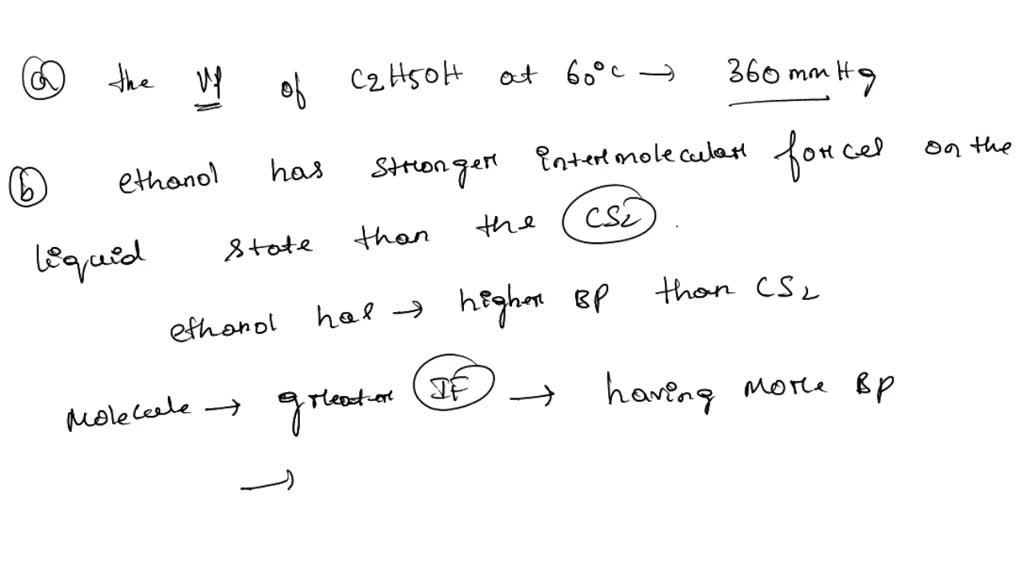 (a) the VP of C2H5OH at 60°C → 360 mm Hg
(b) ethanol has stronger intermolecular forces on the
liquid state than the CS2.
ethanol has → higher BP than CS2
Molecule → greater IF → having more BP
→